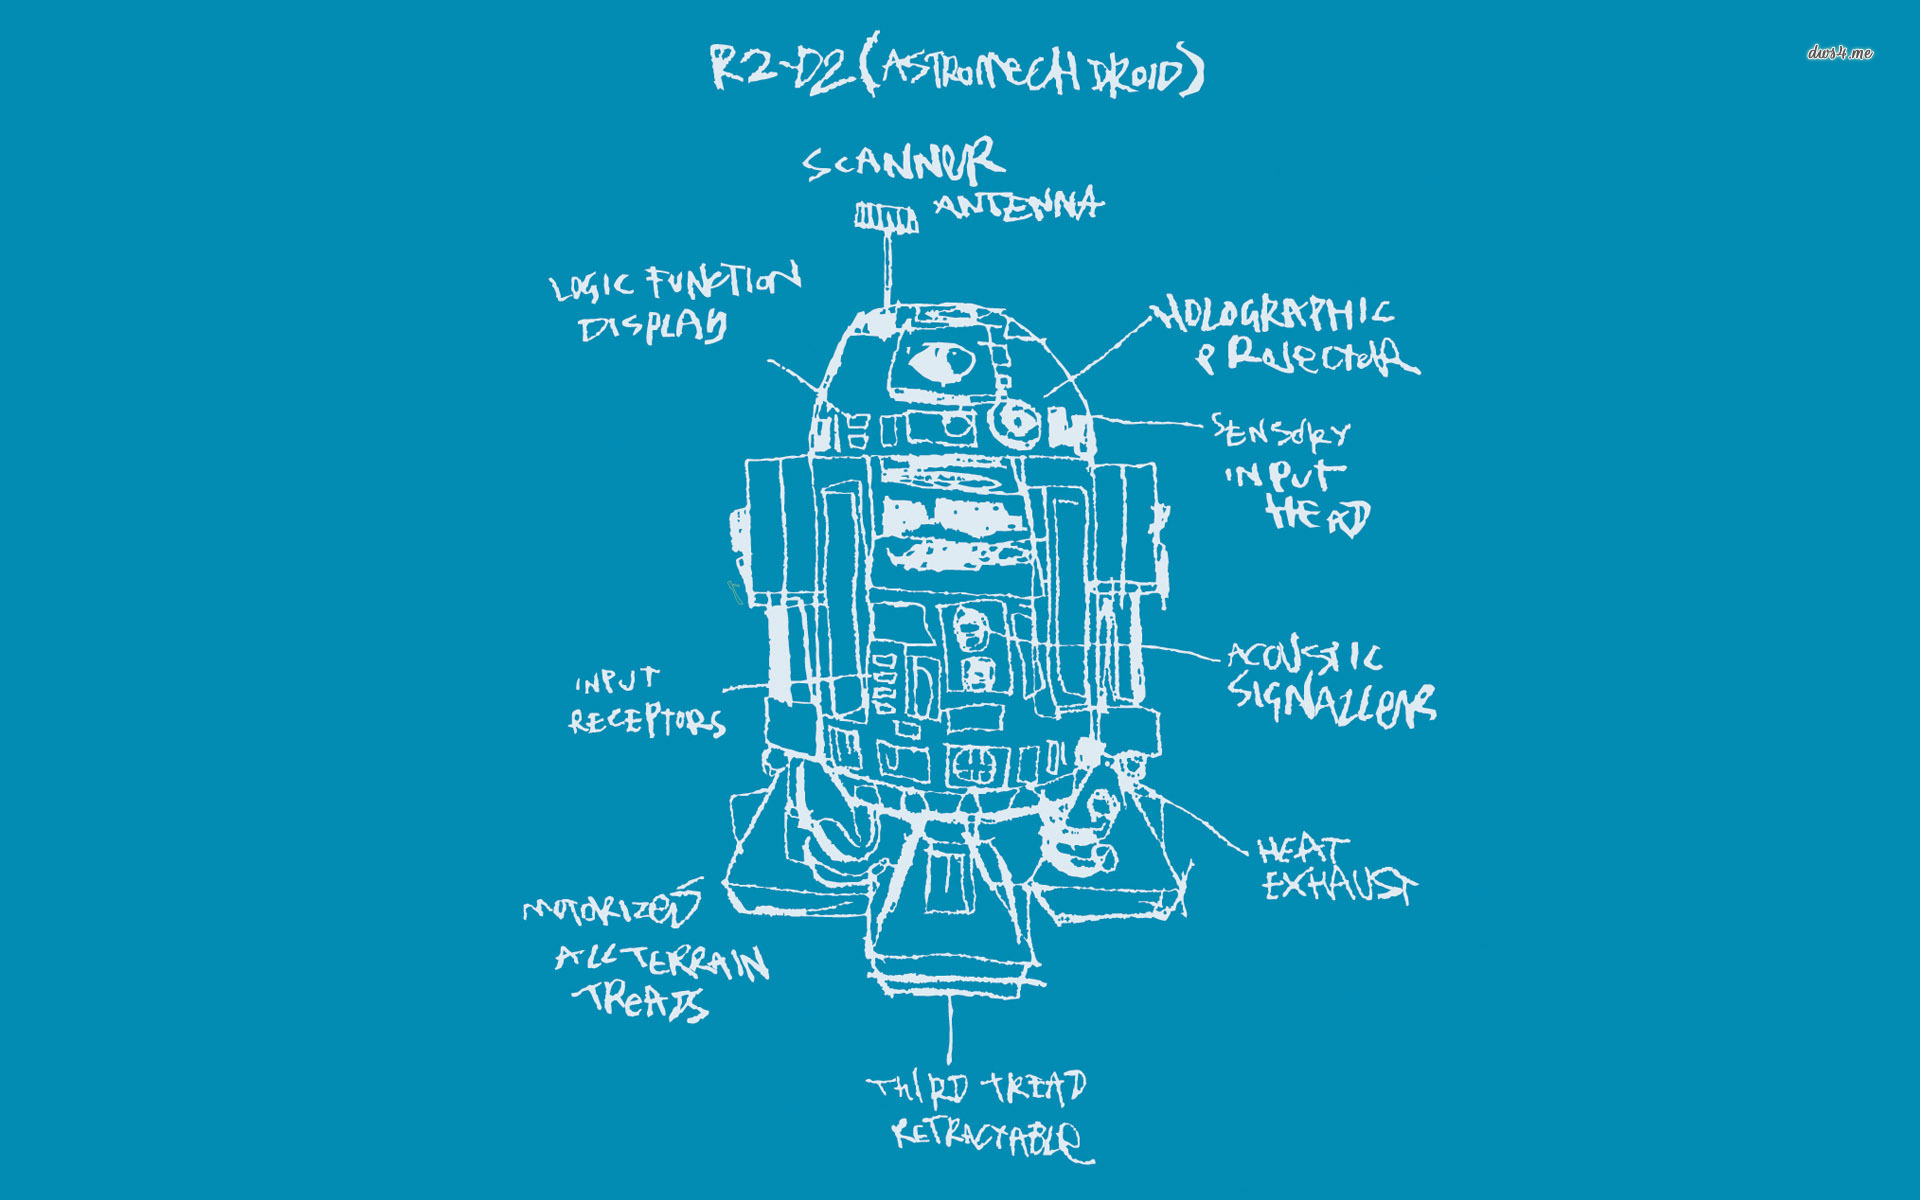 R2-D2 (ASTROMECH DROID)
dws4.me
SCANNER
ANTENNA
LOGIC FUNCTION
DISPLAY
HOLOGRAPHIC
PROJECTOR
SENSORY
INPUT
HEAD
INPUT
RECEPTORS
ACOUSTIC
SIGNALLERS
HEAT
EXHAUST
MOTORIZED
ALL TERRAIN
TREADS
THIRD TREAD
RETRACTABLE